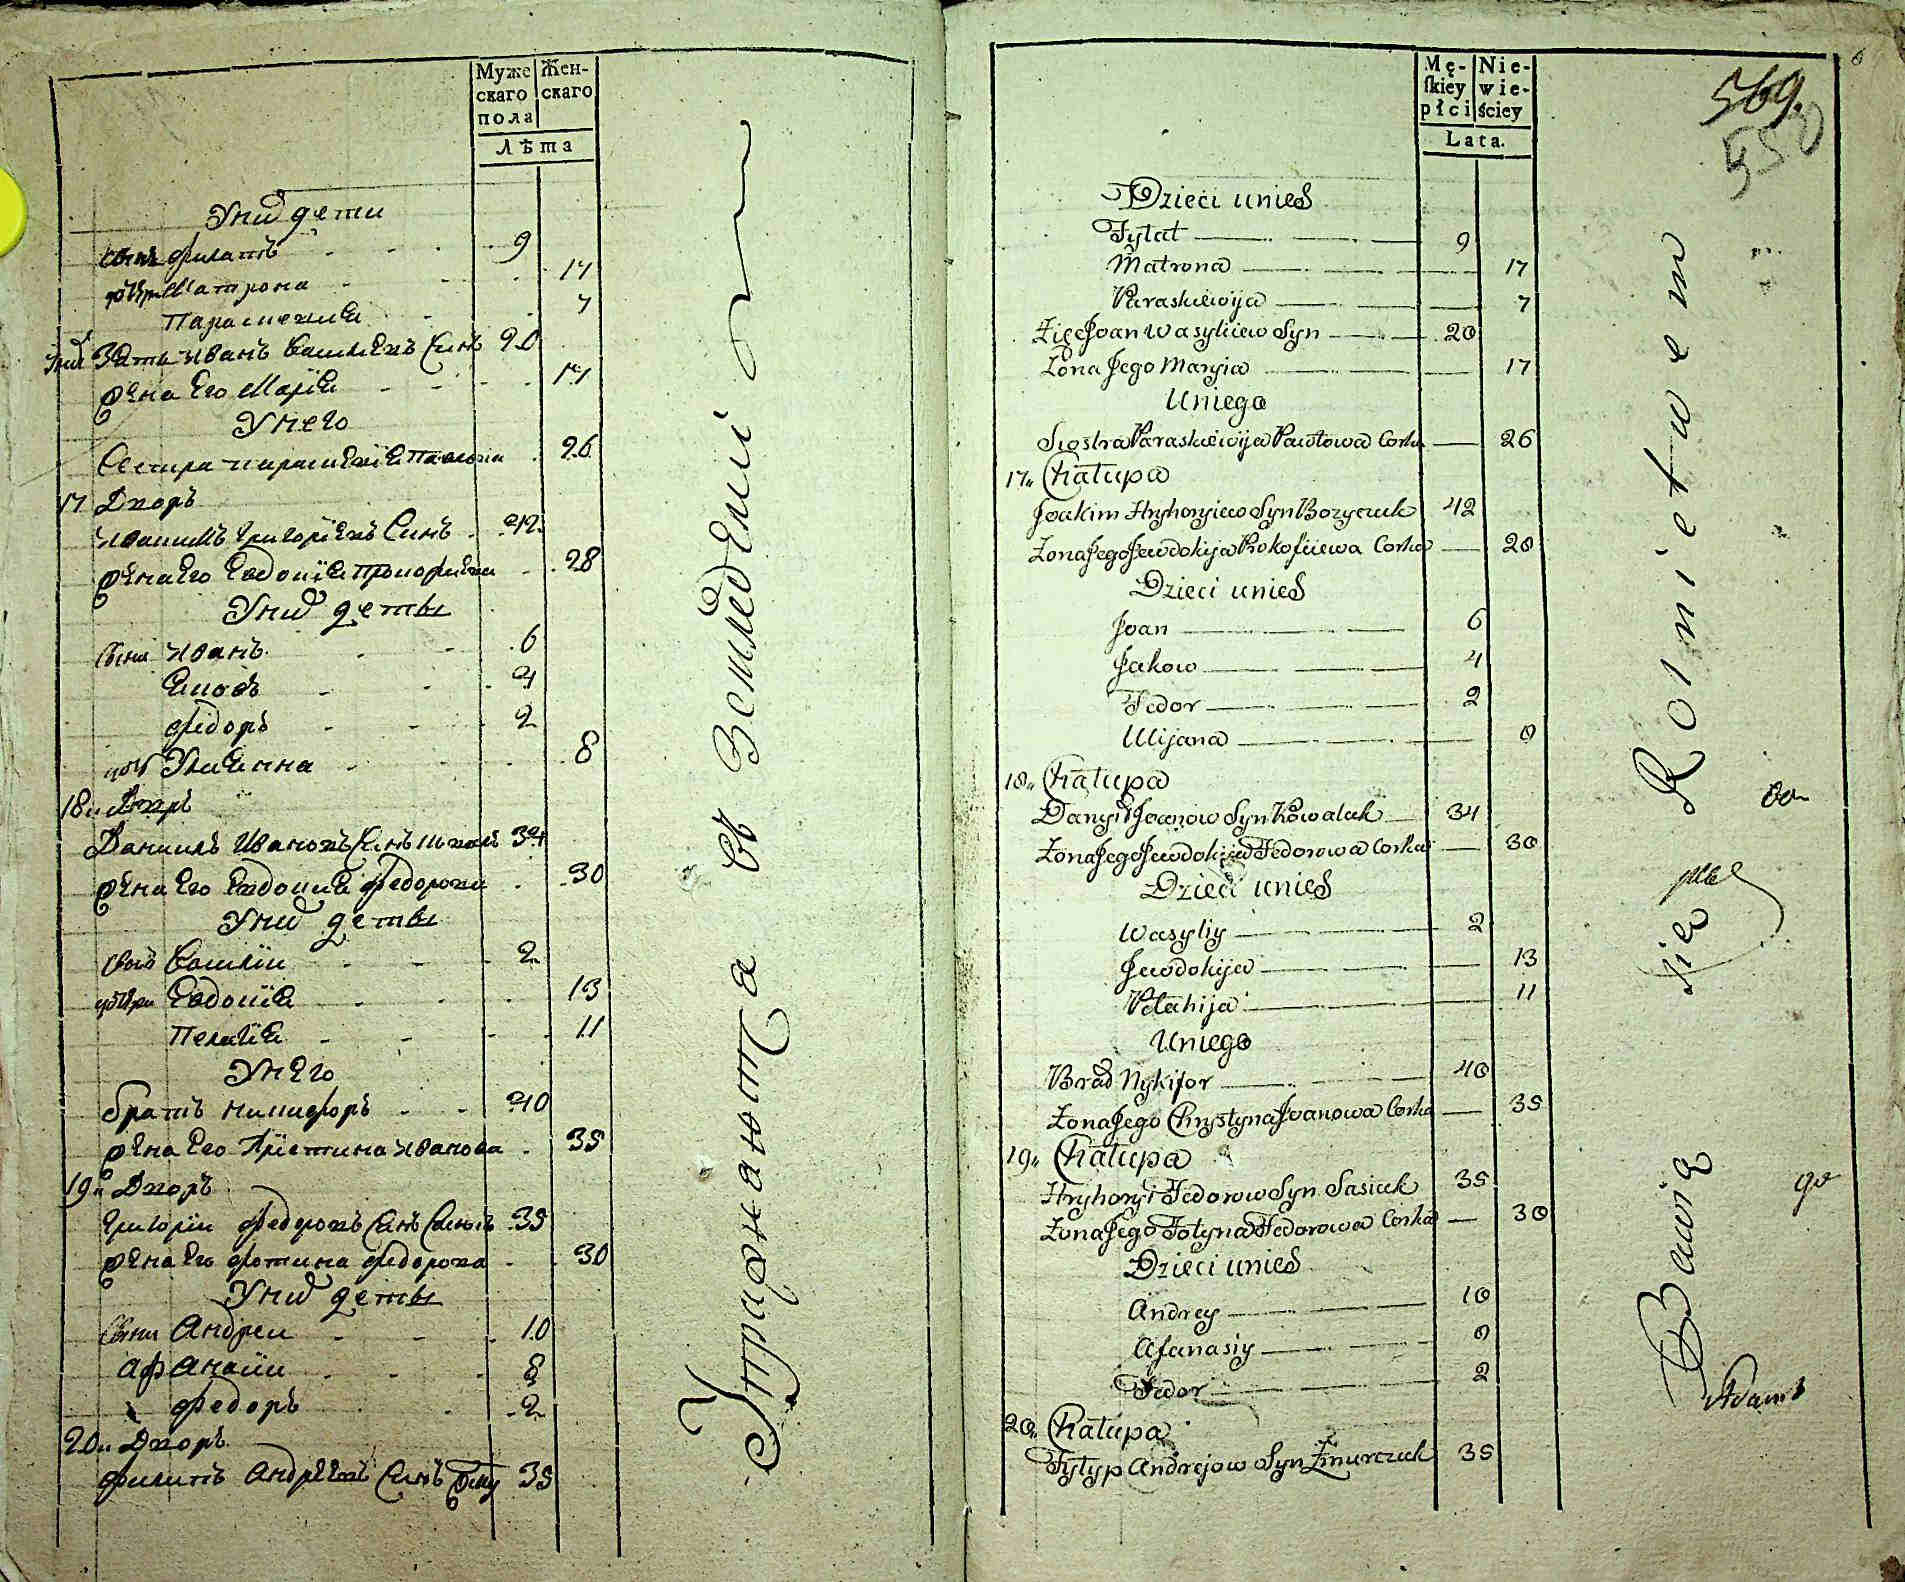 Муже
скаго
пола
Жен-
скаго
Лѣта
У них дети
сын Филатъ 9
дочери Матрона 17
Параскевия 7
Зять Иванъ Василевъ Синъ 20
жена Его Мария 17
У него
Сестра параскевия Павлова 26
17 Дворъ
Иоакимъ Григориевъ Синъ 42
жена Его Евдокия Прокофиева 28
У них деты
сыни Иванъ 6
Яковъ 4
Федоръ 2
дочь Улияна 8
18 Дворъ
Даниилъ Ивановъ Синъ 34
жена Его Евдокия Федорова 30
У них деты
сынъ Василии 2
дочери Евдокия 13
Пелагия 11
У него
братъ никифоръ 40
жена Его Христина Иванова 35
19 Дворъ
Григории Федоровъ Синъ 35
жена Его Фотина Федорова 30
У них деты
сыни Андреи 10
Афанасии 8
Федоръ 2
20 Дворъ
Филипъ Андреевъ Синъ 35
Упражнаютца въ Земледелиі
Mę-
skiey
płci
Nie-
wie-
ściey
Lata.
6
569.
550
Dzieci unich
Fylat 9
Matrona 17
Paraskiewija 7
Zięć Joan Wasyliiew Syn 20
Żona Jego Maryia 17
Uniego
Siostra Paraskiewija Pawłowa Corka 26
17„ Chałupa
Joakim Hryhoryiew Syn Bozyczuk 42
Żona Jego Jewdokija Prokofiiewa Corka 28
Dzieci unich
Joan 6
Jakow 4
Fedor 2
Ulijana 8
18„ Chałupa
Danyił Joanow Syn Kowaluk 34
Żona Jego Jewdokija Fedorowa Corka 30
Dzieci unich
Wasyliy 2
Jewdokija 13
Pelahija 11
Uniego
Brad Nykifor 40
Żona Jego Chrystyna Joanowa Corka 35
19„ Chałupa
Hryhoryi Fedorow Syn Sasiuk 35
Żona Jego Fotyna Fedorowa Corka 30
Dzieci unich
Andrey 10
Afanasiy 8
Fedor 2
20„ Chałupa
Fylyp Andrejow Syn Żmurczuk 35
Bawią się Rolnictwem
Adamъ